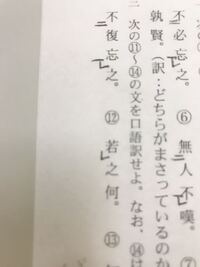 不二必忘一レ之。 ⑥ 無二人不一レ嘆。 ⑦
孰賢。(訳:どちらがまさっているのか
二 次の⑪~⑭の文を口語訳せよ。なお、⑭は
不二復忘一レ之。 ⑫ 若レ之何。 ⑬